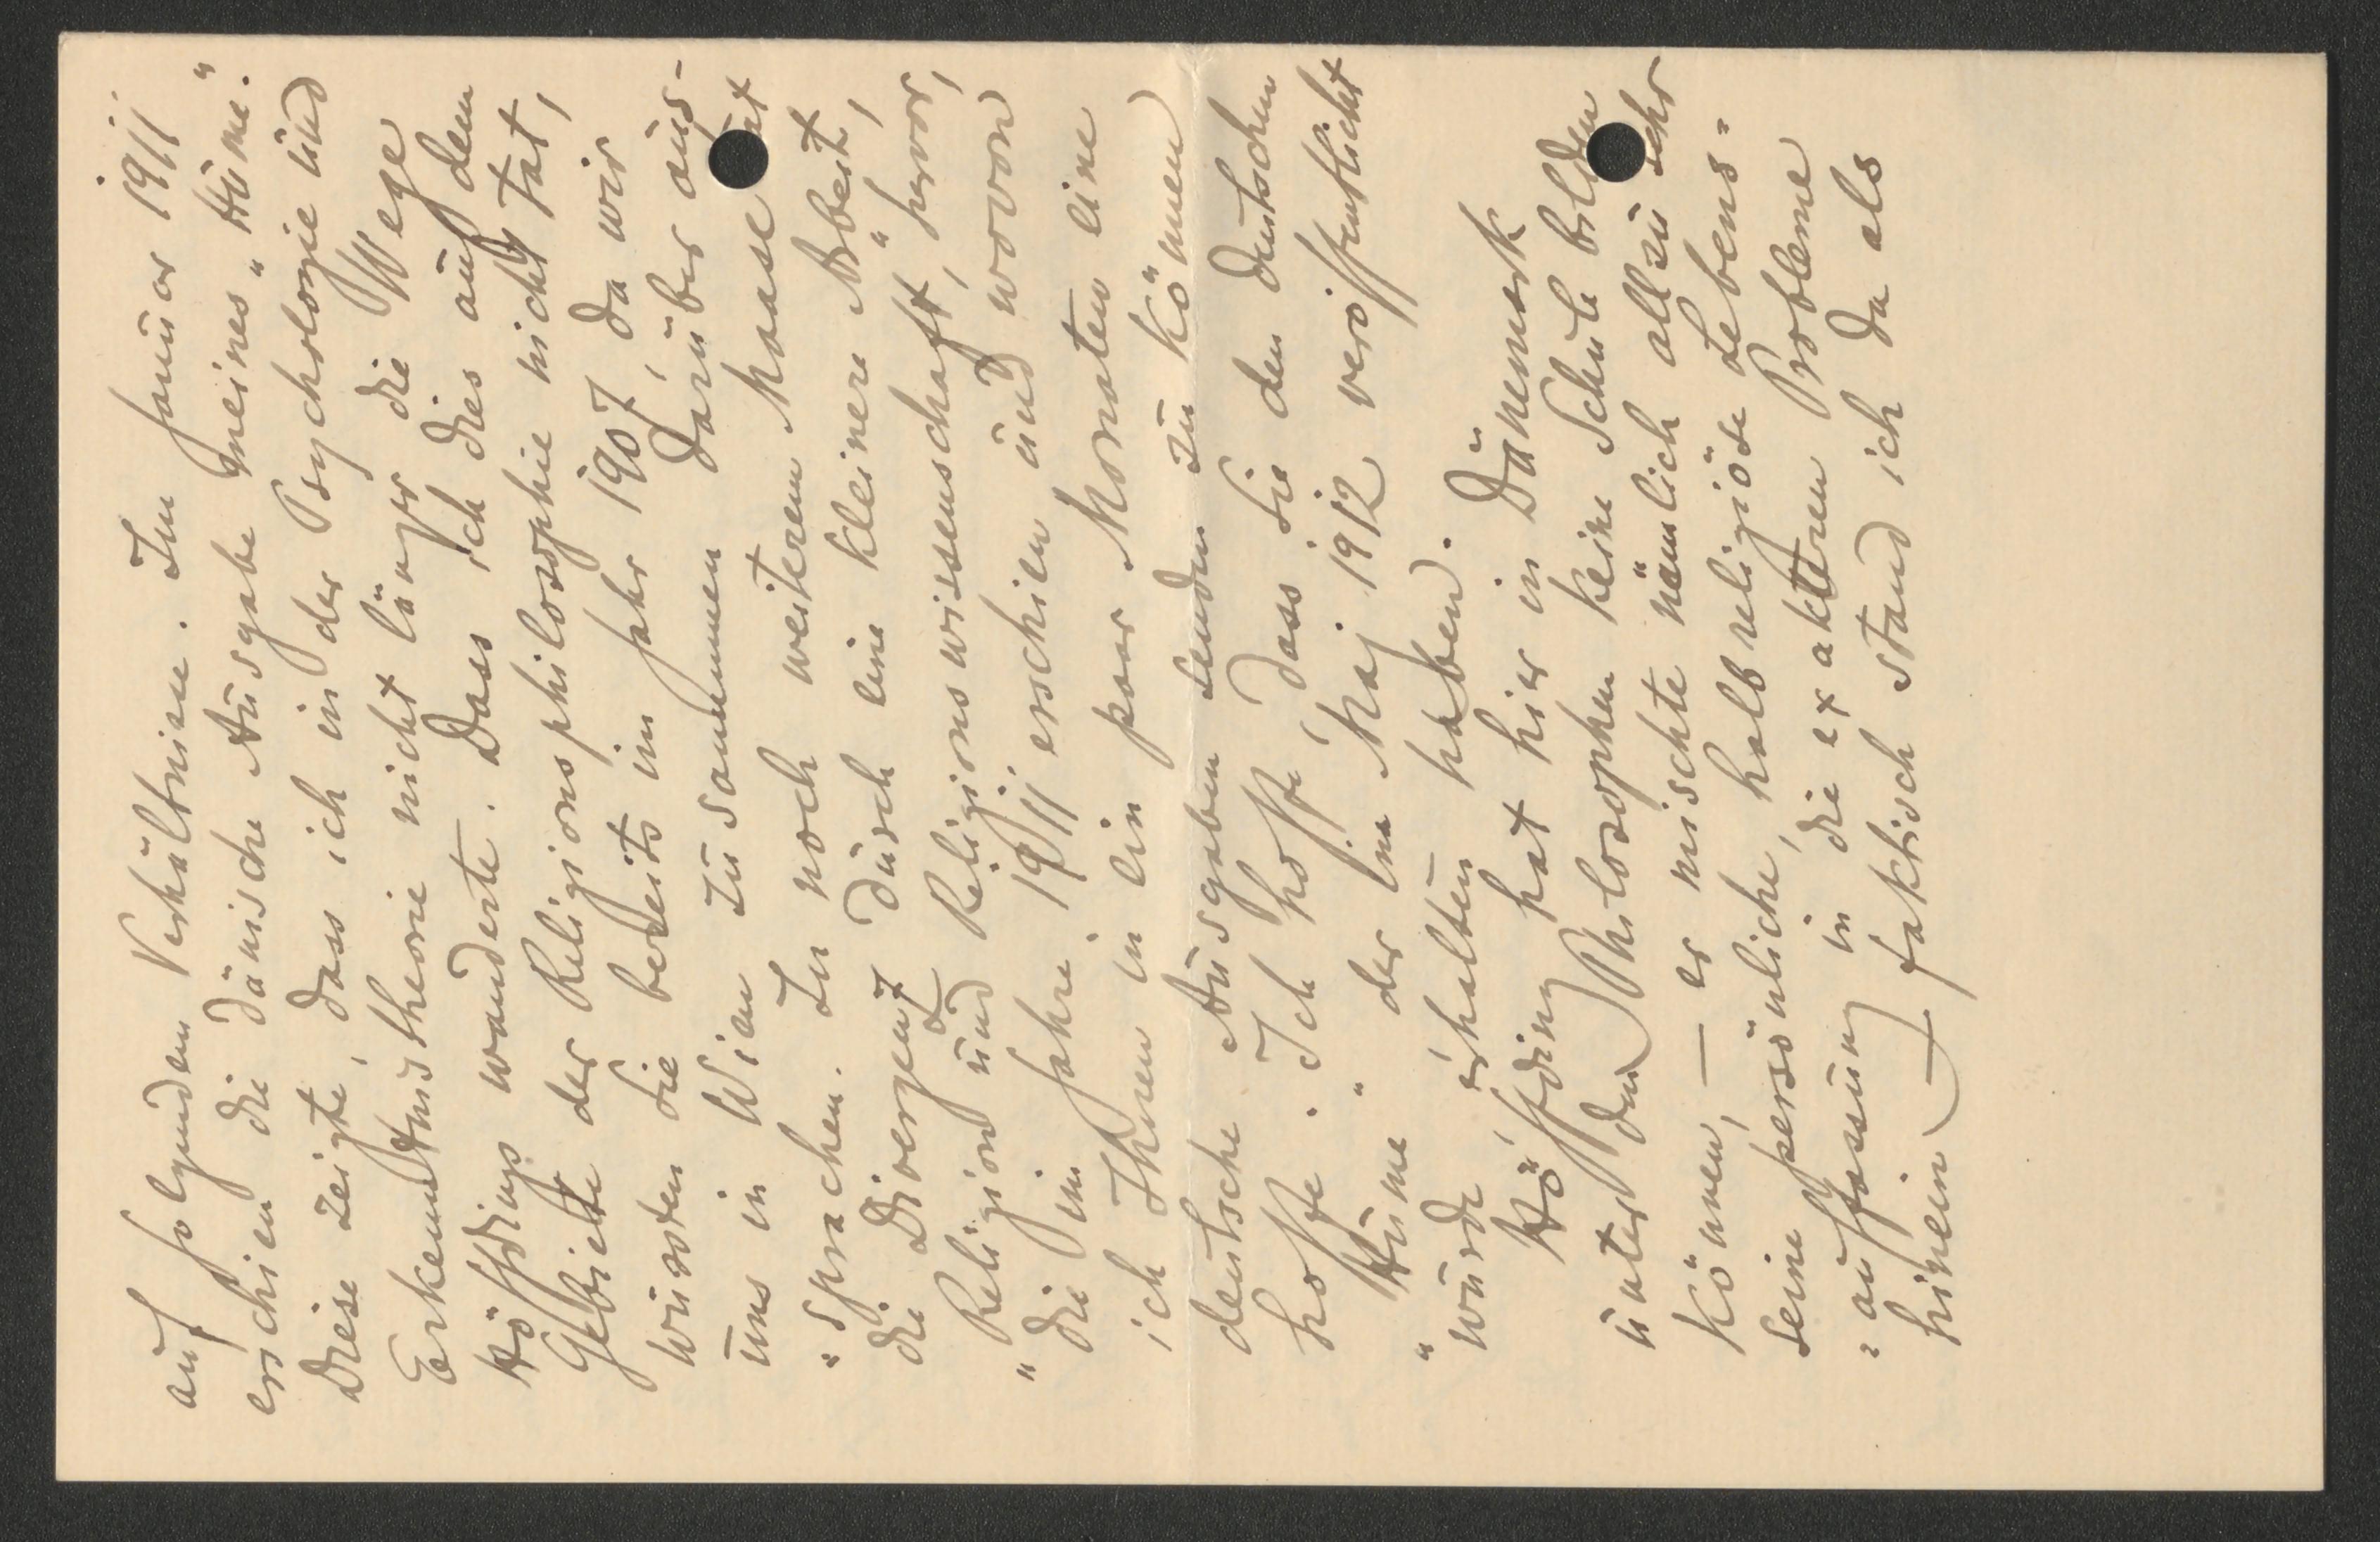 auf folgendem Verhältnisse. Im Januar 1911
erschien die dänische Ausgabe meines "Hume".
Diese zeigte, dass ich in der Psychologie und
Erkenntnistheorie nicht länger die Wege
Höffdings wanderte. Dass ich dies auf dem
Gebiete der Religionsphilosophie nicht tat,
wussten Sie bereits im Jahr 1907, da wir
uns in Wien zusammen darüber aus-
"sprachen. In noch weiterem Masse
die Divergenz durch eine kleinere Arbeit,
"Religion und Religionswissenschaft", hervor,
die im Jahre 1911 erschien und wovon
ich Ihnen in ein paar Monaten eine
deutsche Ausgabe senden zu können
hoffe. Ich hoffe, dass Sie den deutschen
"Hume" der im Maj 1912 veröffentlicht
"wurde, erhalten haben.
Höffding hat hier in Dänemark
unter den Philosophen keine Schule bilden
können, — er mischte nämlich allzu sehr
seine persönliche, halbreligiöse Lebens=
=auffassung in die exakteren Probleme
hinein — faktisch stand ich da als